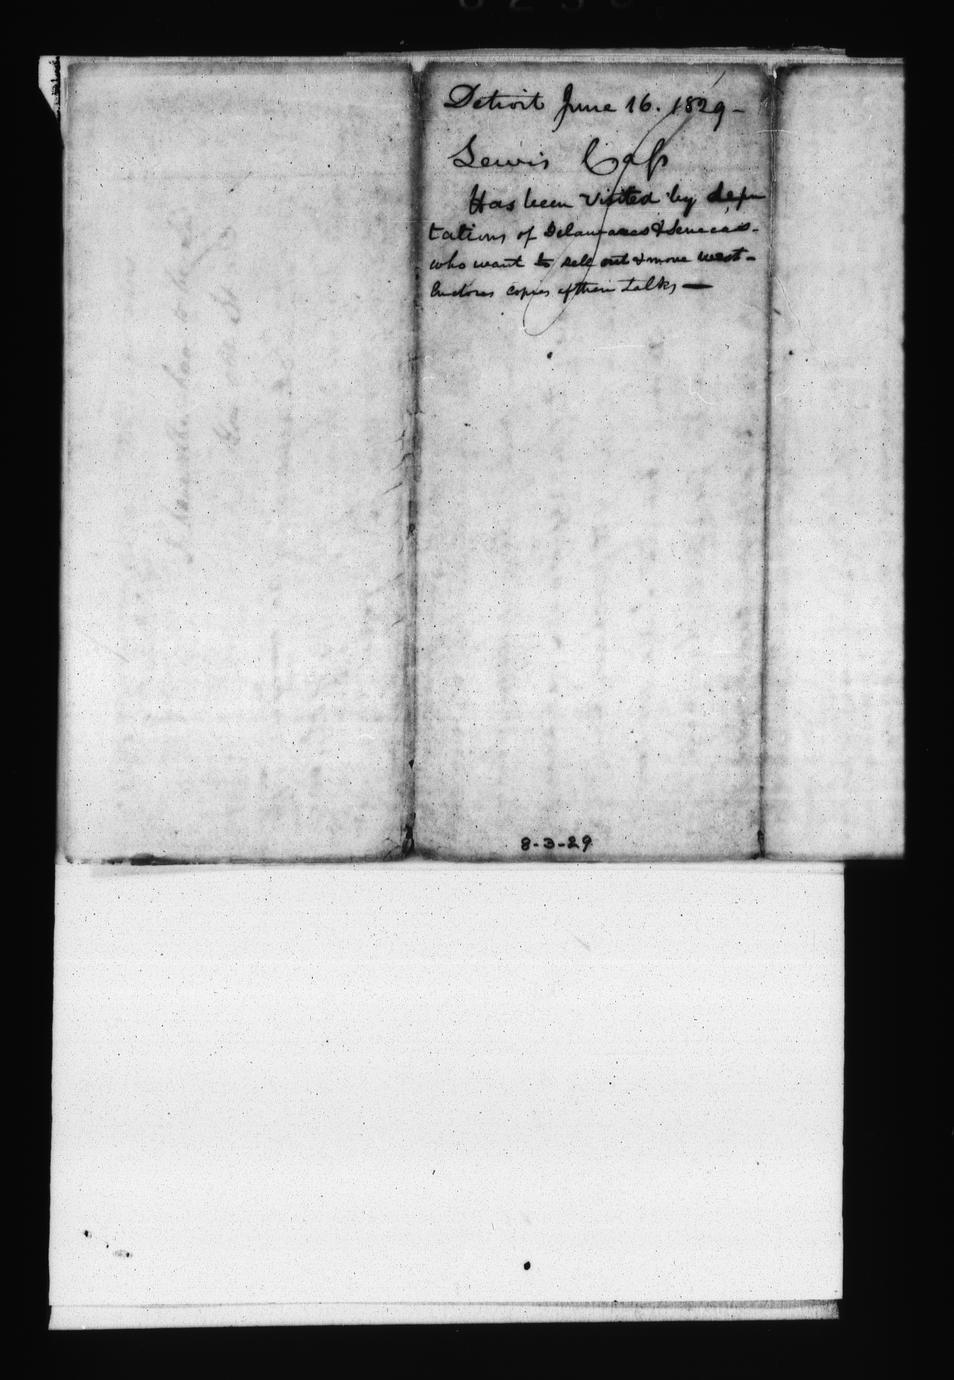 Detroit June 16. 1829-
Lewis Cass
Has been visited by depu
tations of Delawares & Senecas-
who want to sell out & move west-
Encloses copies of their talks—
8-3-29